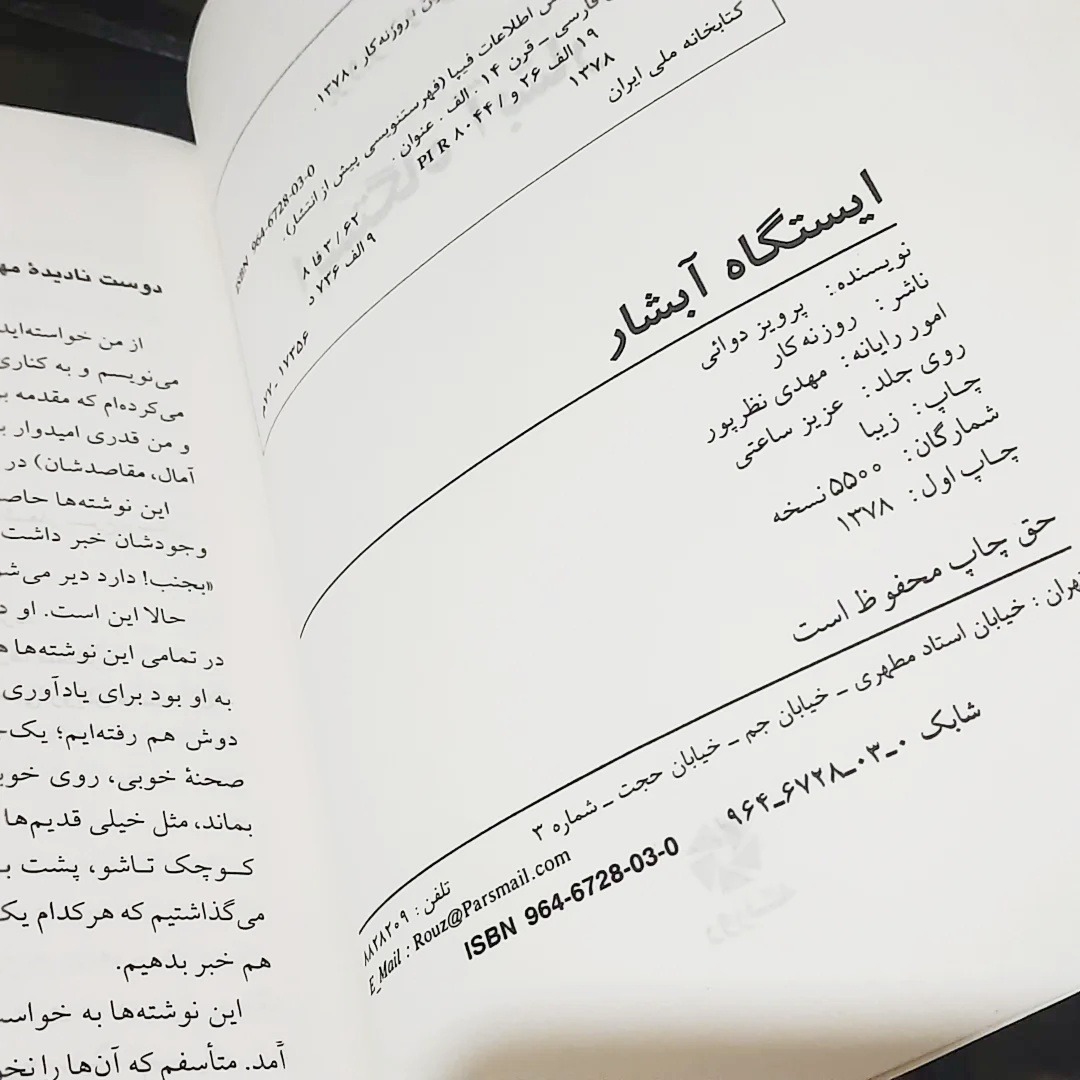 روزنه‌کار، ۱۳۷۸.
ISBN 964-6728-03-0
اطلاعات فیپا (فهرستنویسی پیش از انتشار).
فارسی - قرن ۱۴. الف. عنوان.
۱۹ الف ۲۶ و / PIR ۸۰۴۴
۸ فا ۳ / ۶۲
۱۳۷۸
۹ الف ۷۳۶ د
کتابخانه ملی ایران
۱۷۳۵۶-۷۷م
ایستگاه آبشار
نویسنده: پرویز دوائی
ناشر: روزنه‌کار
امور رایانه: مهدی نظرپور
روی جلد: عزیز ساعتی
چاپ: زیبا
شمارگان: ۵۵۰۰ نسخه
چاپ اول: ۱۳۷۸
حق چاپ محفوظ است
تهران: خیابان استاد مطهری - خیابان جم - خیابان حجت - شماره ۳
تلفن: ۸۸۲۸۲۰۹
E_Mail : Rouz@Parsmail.com
شابک ۰-۰۳-۶۷۲۸-۹۶۴
ISBN 964-6728-03-0
دوست نادیدهٔ
از من خواسته‌اید
می‌نویسم و به کناری
می‌کرده‌ام که مقدمه
و من قدری امیدوار
آمال، مقاصدشان) در
این نوشته‌ها
وجودشان خبر داشت
«بجنب! دارد دیر
حالا این است. او
در تمامی این نوشته‌ها
به او بود برای یادآوری
دوش هم رفته‌ایم؛
صحنهٔ خوبی، روی
بماند، مثل خیلی قدیم‌ها
کوچک تاشو، پشت
می‌گذاشتیم که هرکدام یک
هم خبر بدهیم.
این نوشته‌ها به
آمد. متأسفم که آن‌ها را